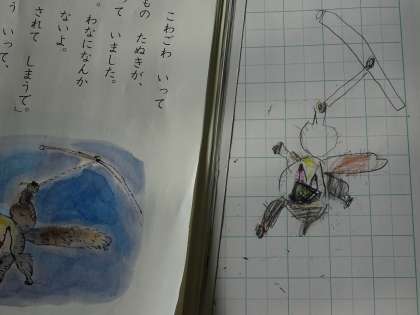 こわごわ いって
もの たぬきが、
って いました。
。わなになんか
ないよ。
されて しまうで。」
う いって、